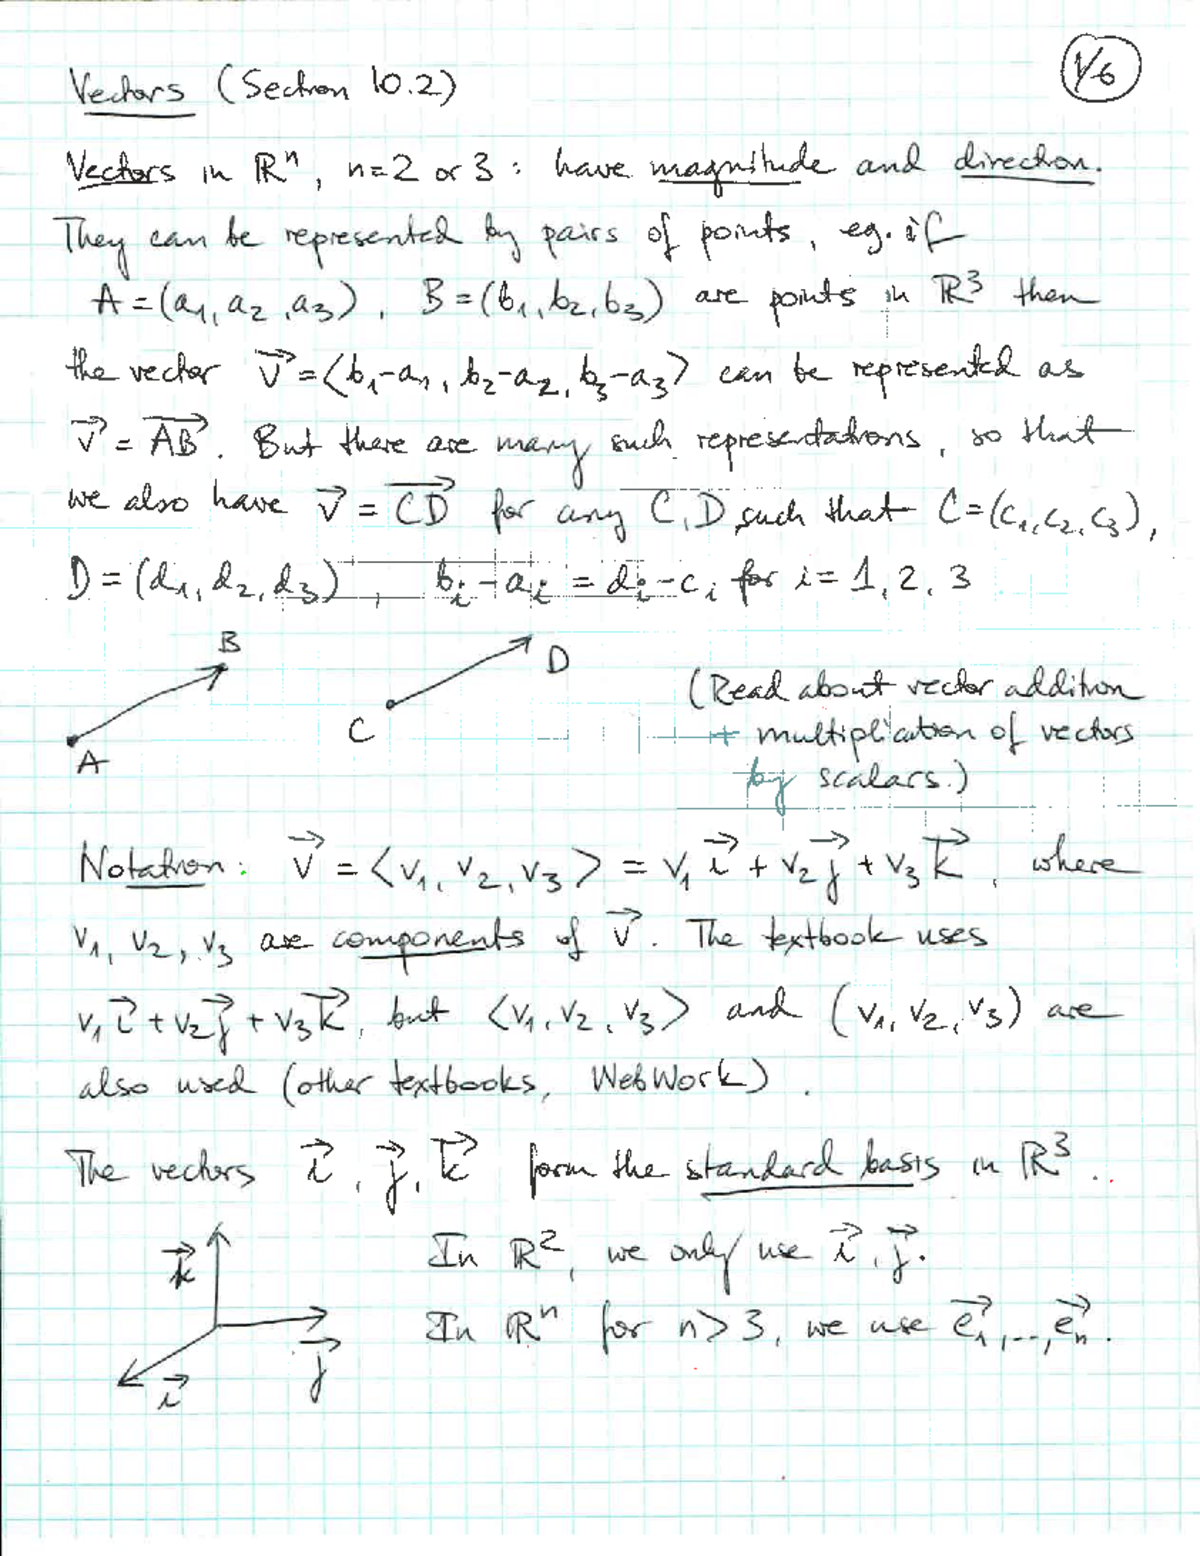 Vectors (Section 10.2)
1/6
Vectors in ℝⁿ, n=2 or 3 : have magnitude and direction.
They can be represented by pairs of points, eg. if
A = (a₁, a₂, a₃), B = (b₁, b₂, b₃) are points in ℝ³ then
the vector v⃗ = ⟨b₁-a₁, b₂-a₂, b₃-a₃⟩ can be represented as
v⃗ = A⃗B⃗. But there are many such representations, so that
we also have v⃗ = C⃗D⃗ for any C, D such that C = (c₁, c₂, c₃),
D = (d₁, d₂, d₃), bᵢ - aᵢ = dᵢ - cᵢ for i = 1, 2, 3
B
D
C
A
(Read about vector addition
+ multiplication of vectors
by scalars.)
Notation: v⃗ = ⟨v₁, v₂, v₃⟩ = v₁ i⃗ + v₂ j⃗ + v₃ k⃗, where
v₁, v₂, v₃ are components of v⃗. The textbook uses
v₁ i⃗ + v₂ j⃗ + v₃ k⃗, but ⟨v₁, v₂, v₃⟩ and (v₁, v₂, v₃) are
also used (other textbooks, WebWork).
The vectors i⃗, j⃗, k⃗ form the standard basis in ℝ³.
k⃗
In ℝ², we only use i⃗, j⃗.
In ℝⁿ for n>3, we use e⃗₁, ..., e⃗ₙ.
j⃗
i⃗